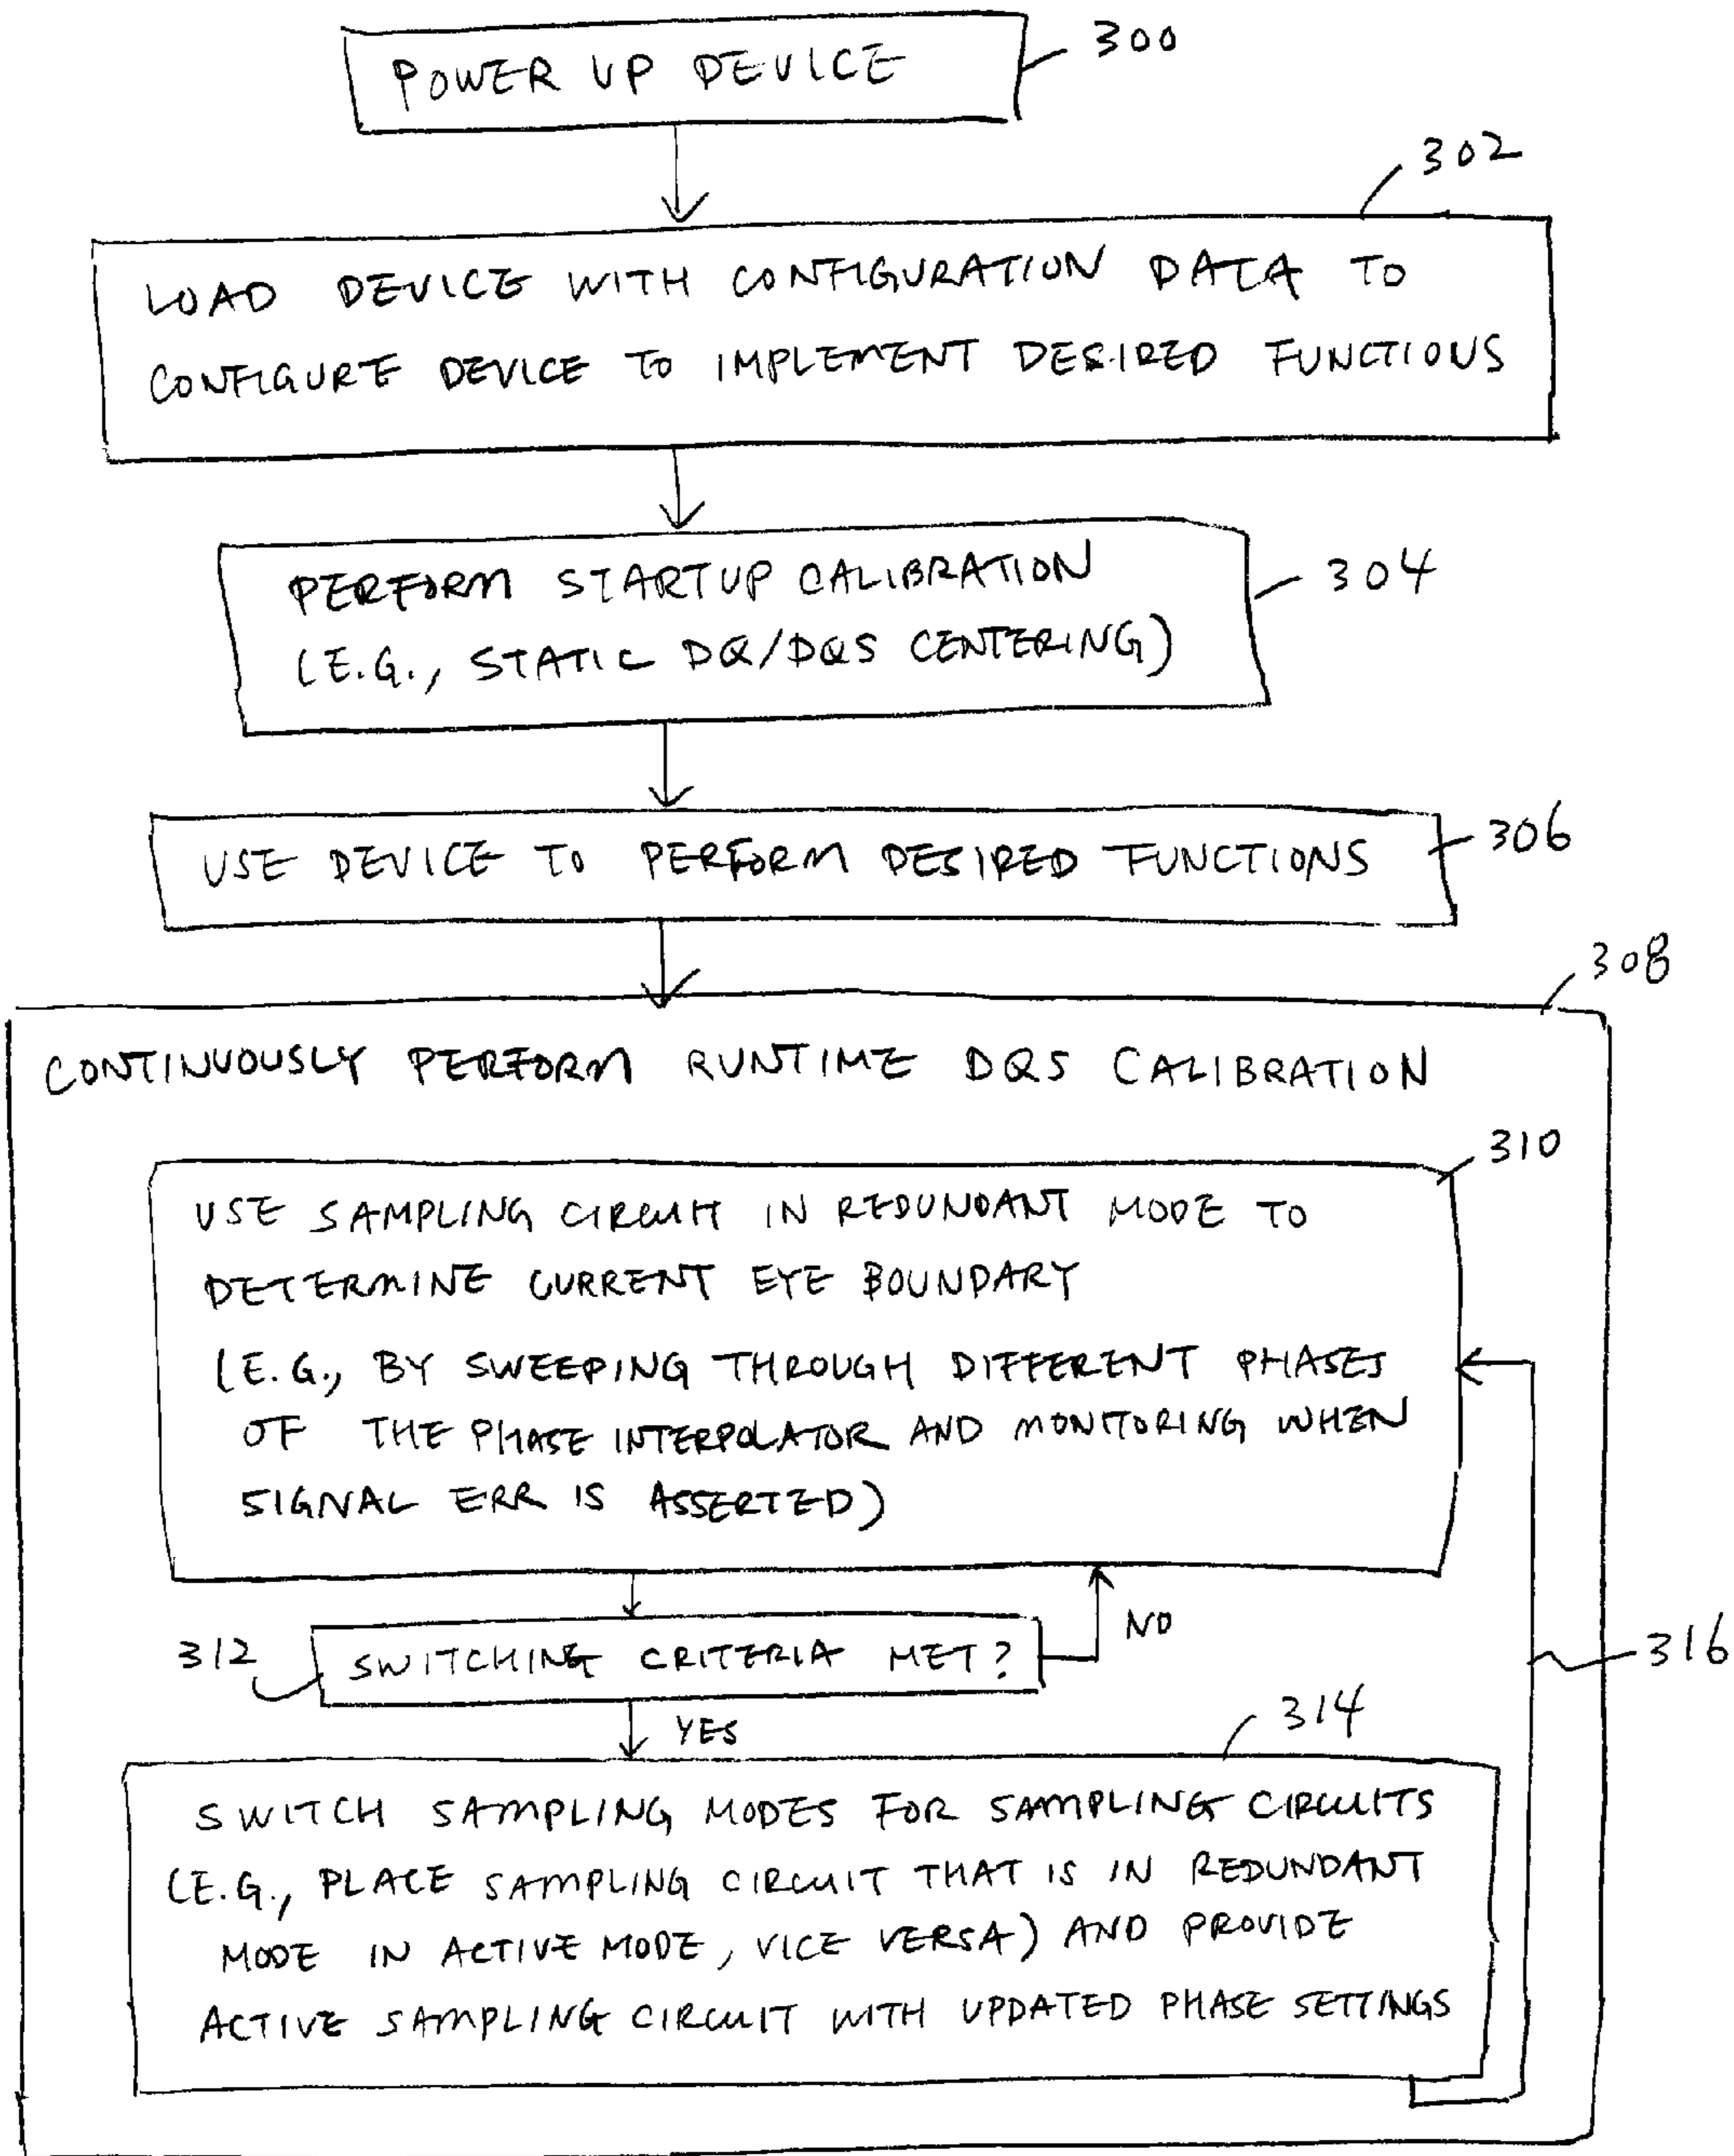 POWER UP DEVICE
300
302
LOAD DEVICE WITH CONFIGURATION DATA TO
CONFIGURE DEVICE TO IMPLEMENT DESIRED FUNCTIONS
PERFORM STARTUP CALIBRATION
(E.G., STATIC DQ/DQS CENTERING)
304
USE DEVICE TO PERFORM DESIRED FUNCTIONS
306
308
CONTINUOUSLY PERFORM RUNTIME DQS CALIBRATION
310
USE SAMPLING CIRCUIT IN REDUNDANT MODE TO
DETERMINE CURRENT EYE BOUNDARY
(E.G., BY SWEEPING THROUGH DIFFERENT PHASES
OF THE PHASE INTERPOLATOR AND MONITORING WHEN
SIGNAL ERR IS ASSERTED)
312
SWITCHING CRITERIA MET?
NO
316
YES
314
SWITCH SAMPLING MODES FOR SAMPLING CIRCUITS
(E.G., PLACE SAMPLING CIRCUIT THAT IS IN REDUNDANT
MODE IN ACTIVE MODE, VICE VERSA) AND PROVIDE
ACTIVE SAMPLING CIRCUIT WITH UPDATED PHASE SETTINGS